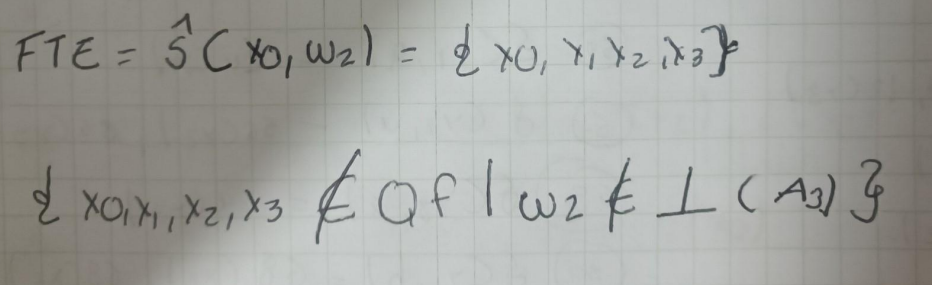 FTE = Ŝ ( x0, w2 ) = { x0, x1, x2, x3 }
{ x0, x1, x2, x3 ∉ Qf | w2 ∉ ⊥ ( A3 ) }